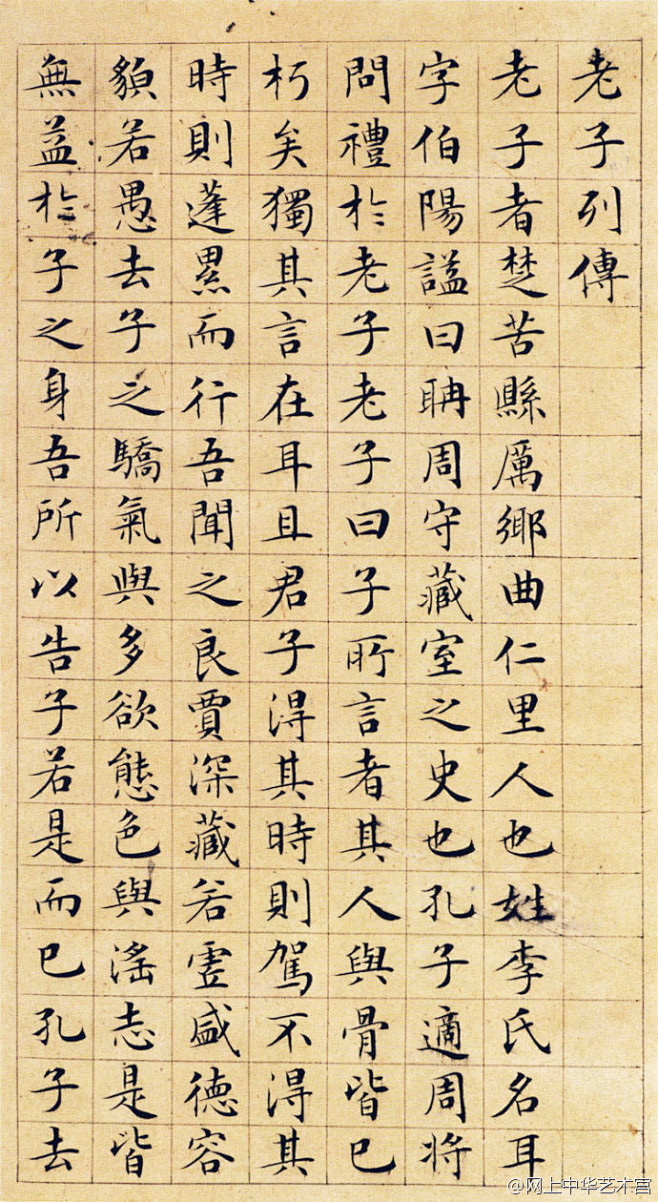 老子列傳
老子者楚苦縣厲鄉曲仁里人也姓李氏名耳
字伯陽謚曰聃周守藏室之史也孔子適周将
問禮於老子老子曰子所言者其人與骨皆已
朽矣獨其言在耳且君子得其時則駕不得其
時則蓬累而行吾聞之良賈深藏若虛盛德容
貌若愚去子之驕氣與多欲態色與淫志是皆
無益於子之身吾所以告子若是而已孔子去
@网上中华艺术宫